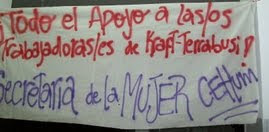 ¡Todo el Apoyo a las/os
trabajadoras/es de Kraft-Terrabusi!
Secretaria de la MUJER CEHUM